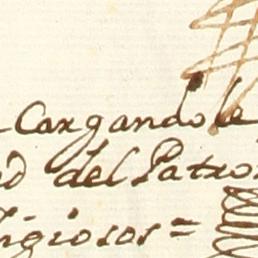 Cargandole
del Patro
ligiosos=